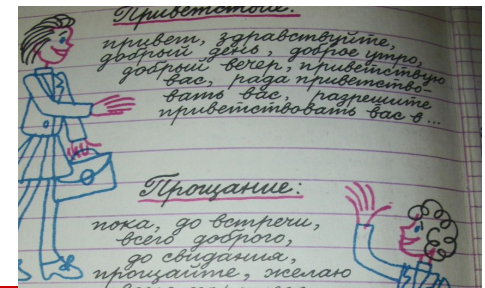 Приветствие:
привет, здравствуйте,
добрый день, доброе утро,
добрый вечер, приветствую
вас, рада приветство-
вать вас, разрешите
приветствовать вас в...
Прощание:
пока, до встречи,
всего доброго,
до свидания,
прощайте, желаю
всего